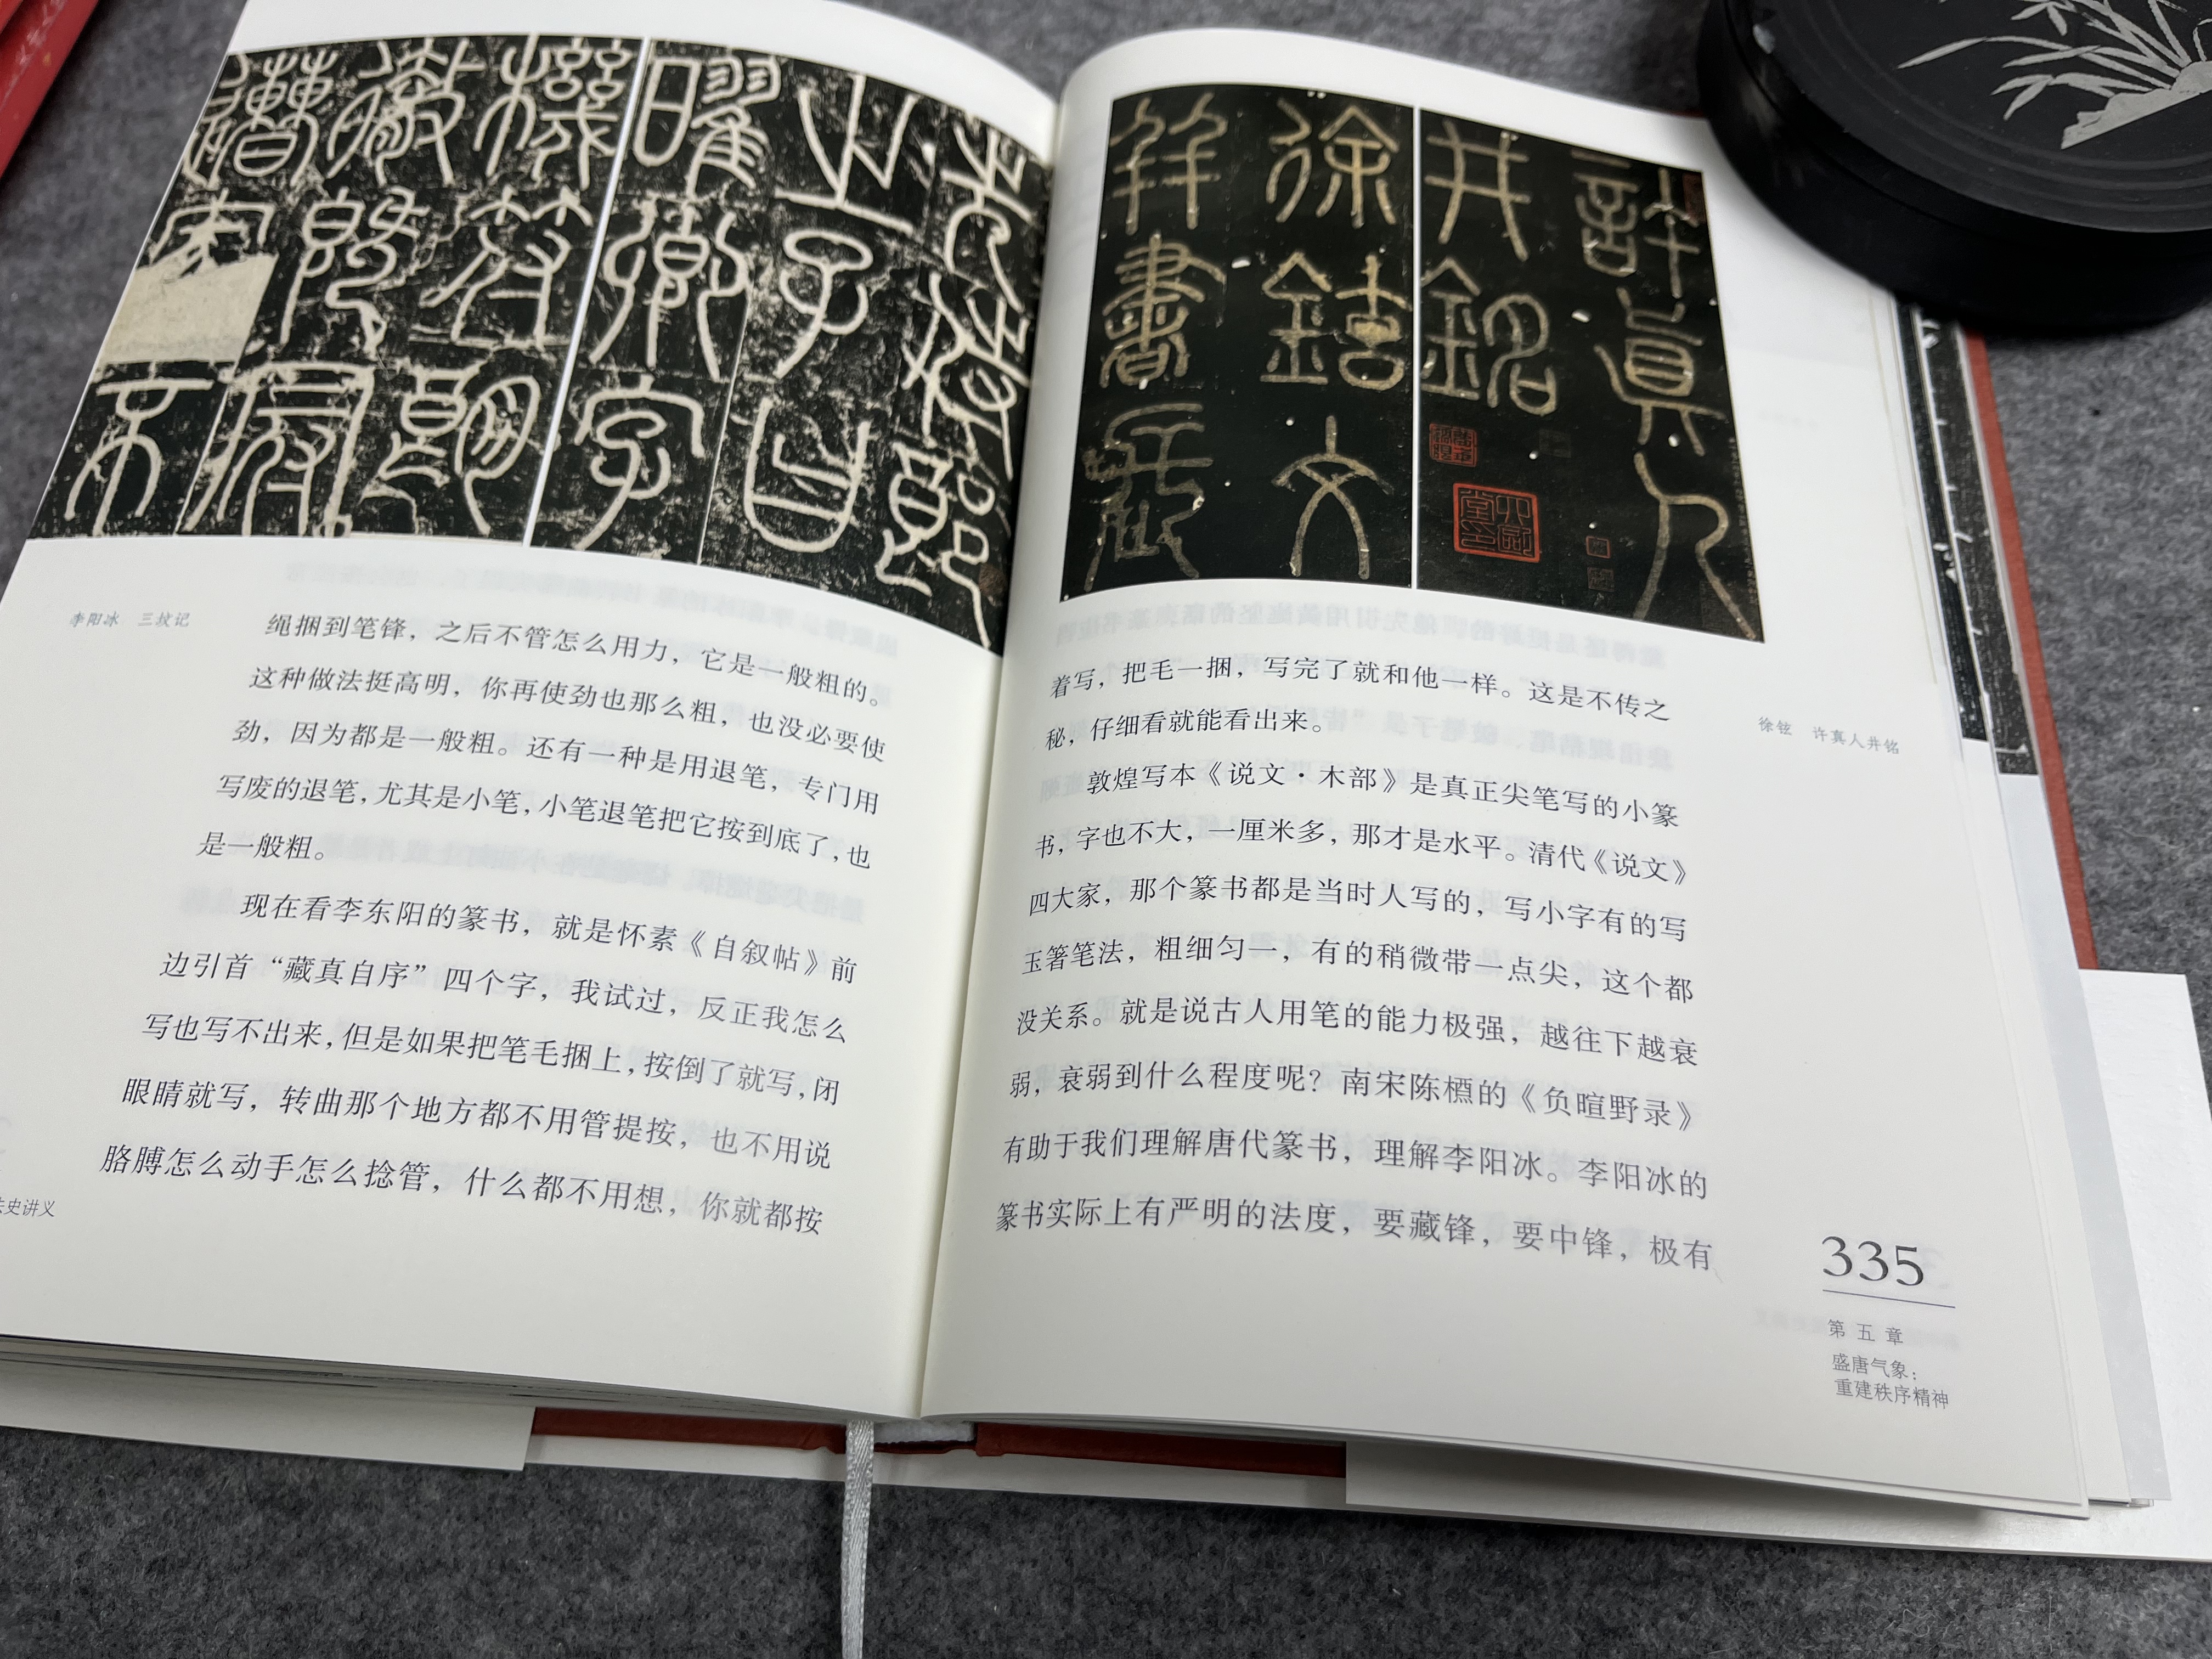 李阳冰 三坟记
绳捆到笔锋，之后不管怎么用力，它是一般粗的。
这种做法挺高明，你再使劲也那么粗，也没必要使
劲，因为都是一般粗。还有一种是用退笔，专门用
写废的退笔，尤其是小笔，小笔退笔把它按到底了，也
是一般粗。
现在看李东阳的篆书，就是怀素《自叙帖》前
边引首“藏真自序”四个字，我试过，反正我怎么
写也写不出来，但是如果把笔毛捆上，按倒了就写，闭
眼睛就写，转曲那个地方都不用管提按，也不用说
胳膊怎么动手怎么捻管，什么都不用想，你就都按
史讲义
許真人
井銘
徐鍇文
书
徐铉 许真人井铭
着写，把毛一捆，写完了就和他一样。这是不传之
秘，仔细看就能看出来。
敦煌写本《说文·木部》是真正尖笔写的小篆
书，字也不大，一厘米多，那才是水平。清代《说文》
四大家，那个篆书都是当时人写的，写小字有的写
玉箸笔法，粗细匀一，有的稍微带一点尖，这个都
没关系。就是说古人用笔的能力极强，越往下越衰
弱，衰弱到什么程度呢？南宋陈槱的《负暄野录》
有助于我们理解唐代篆书，理解李阳冰。李阳冰的
篆书实际上有严明的法度，要藏锋，要中锋，极有
335
第五章
盛唐气象：
重建秩序精神